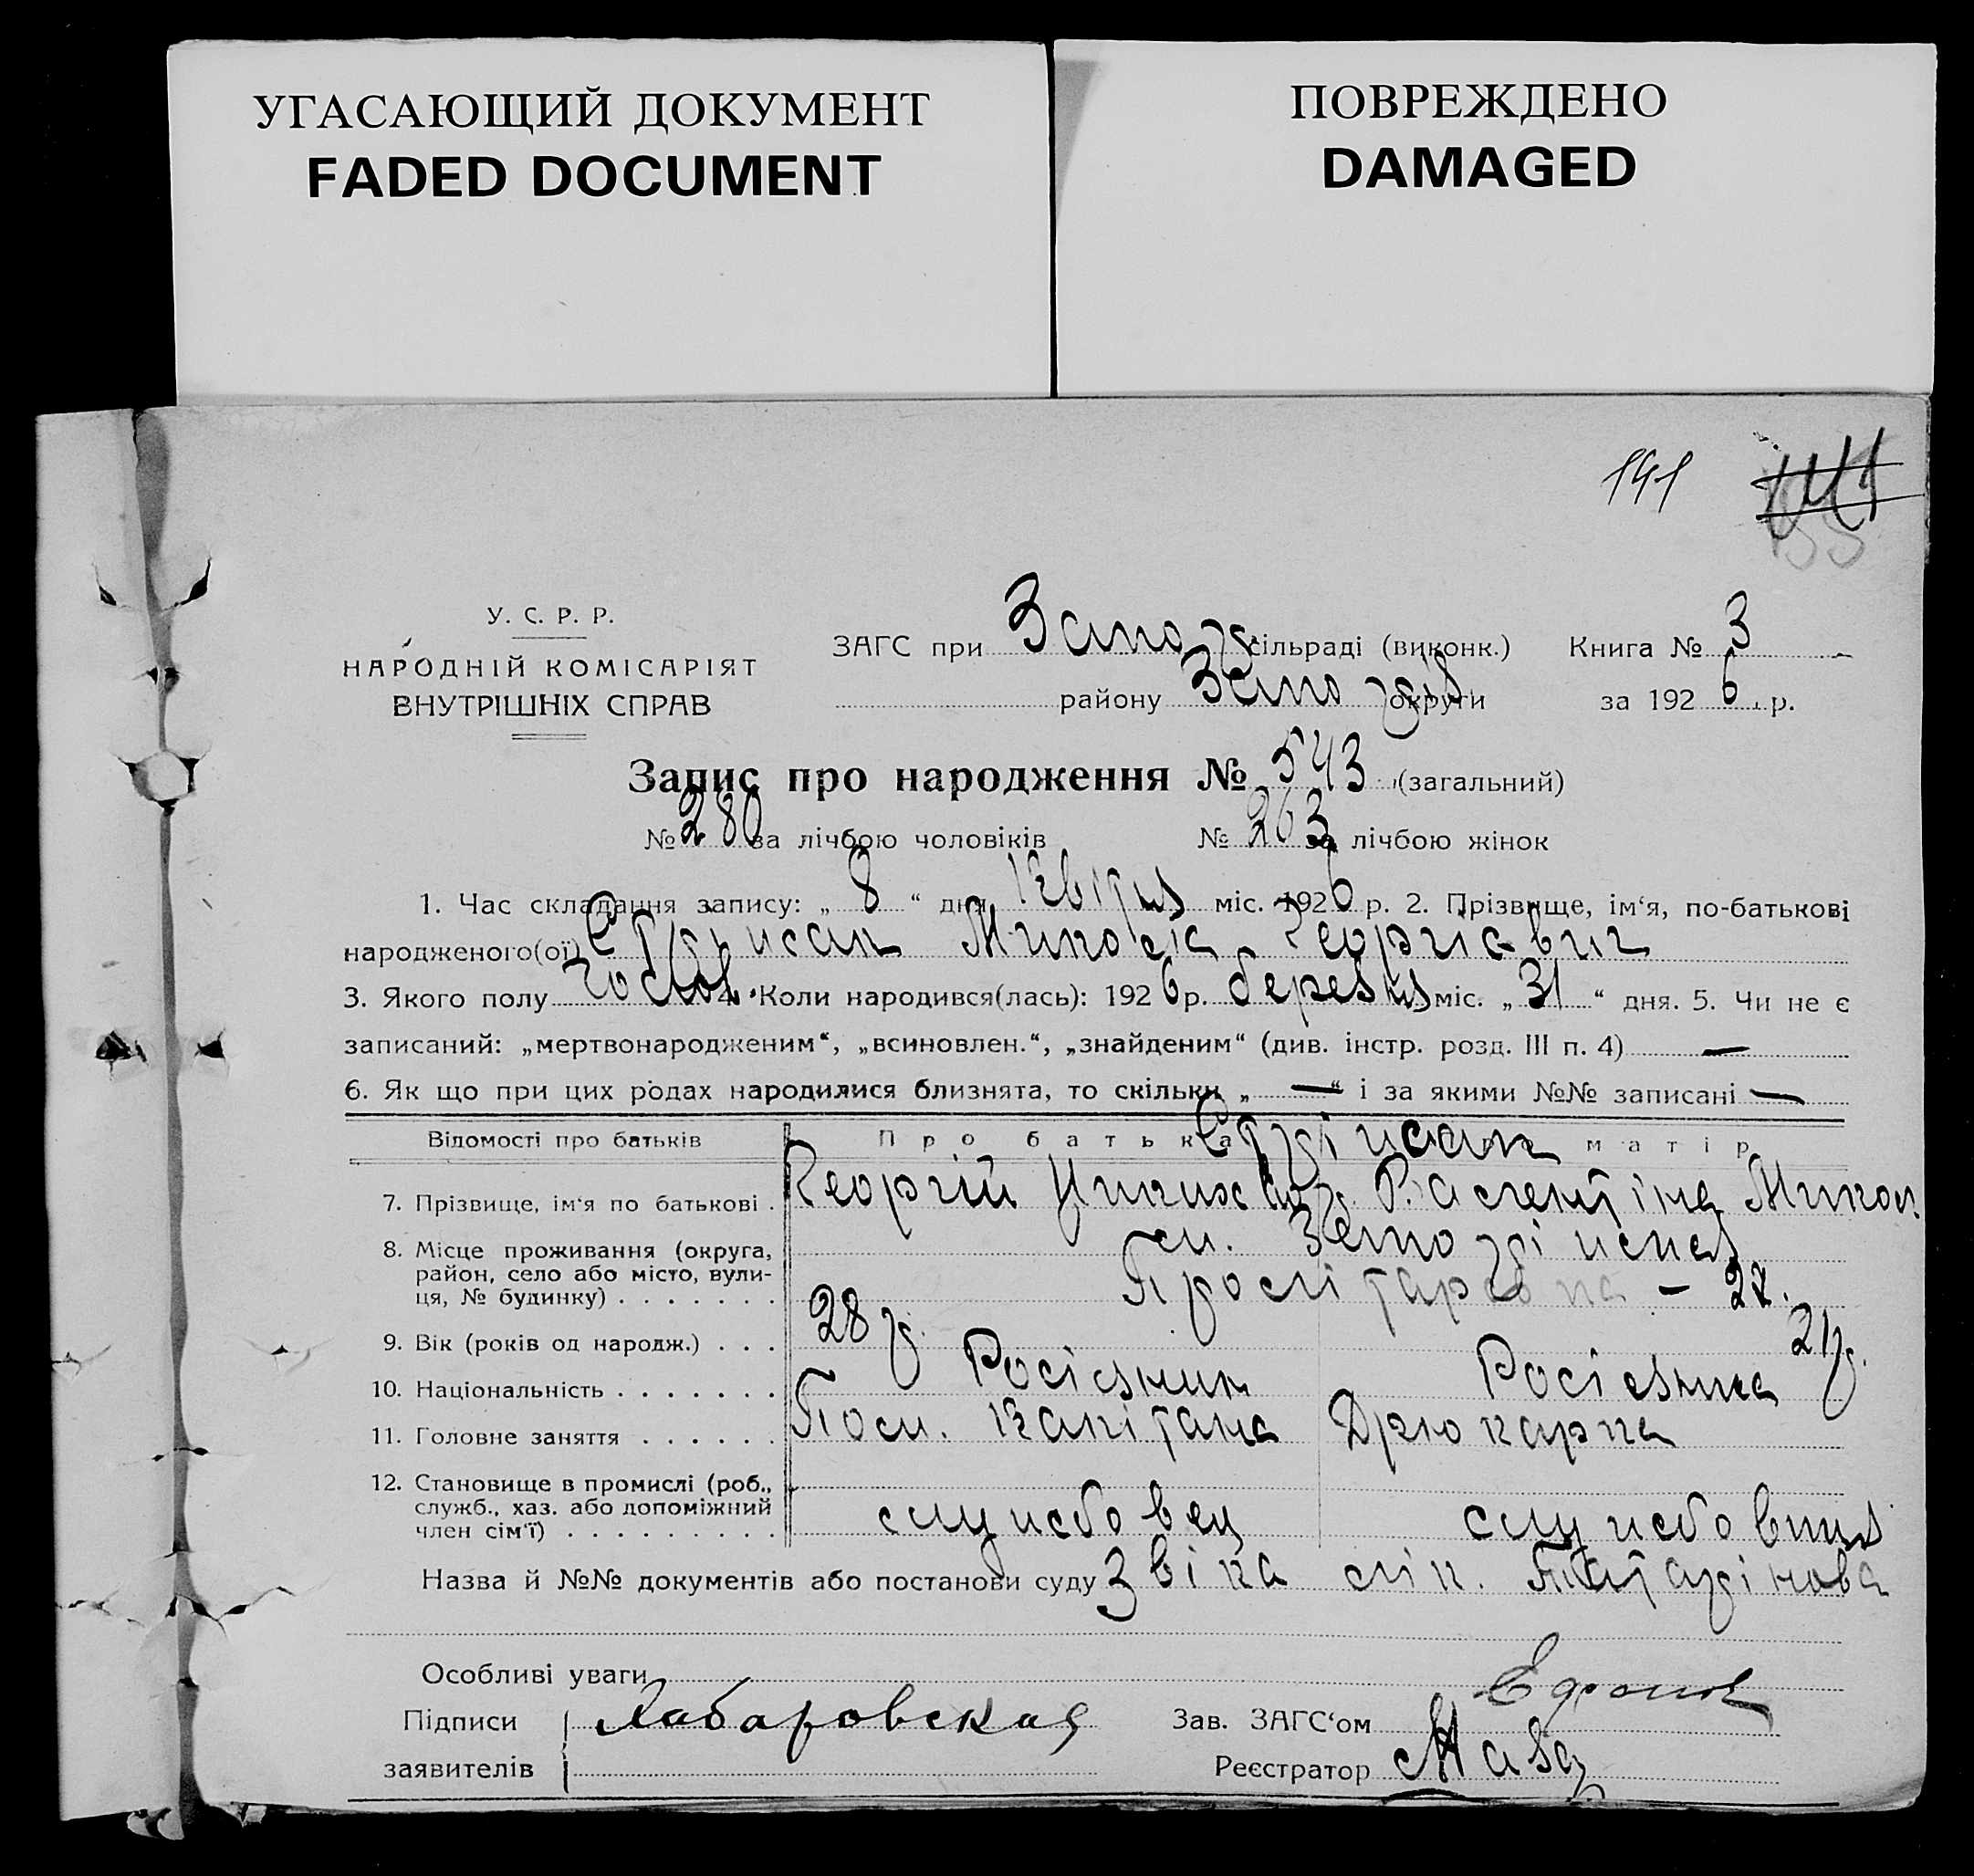 УГАСАЮЩИЙ ДОКУМЕНТ
FADED DOCUMENT
ПОВРЕЖДЕНО
DAMAGED
141
У. С. Р. Р.
НАРОДНІЙ КОМІСАРІЯТ
ВНУТРІШНІХ СПРАВ
ЗАГС при Запор сільраді (виконк.) Книга № 3
району Запоріз округи за 1926 р.
Запис про народження № 543 (загальний)
№ 280 за лічбою чоловіків № 263 за лічбою жінок
1. Час складання запису: „ 8 “ дня Квітня міс. 1926 р. 2. Прізвище, ім‘я, по-батькові
народженого(ої) Микола Георгієвич
3. Якого полу чолов 4. Коли народився(лась): 1926 р. березня міс. „ 31 “ дня. 5. Чи не є
записаний: „мертвонародженим“, „всиновлен.“, „знайденим“ (див. інстр. розд. III п. 4) —
6. Як що при цих родах народилися близнята, то скільки „ — “ і за якими №№ записані —
Відомості про батьків Про батька матір
7. Прізвище, ім‘я по батькові . Георгій Валентіна Микол.
8. Місце проживання (округа, м. Запоріжжя
район, село або місто, вули-
ця, № будинку) . . . . . . . Пролітарська – 22.
9. Вік (років од народж.) . . . 28 р. 21 р.
10. Національність . . . . . . . Росіянин Росіянка
11. Головне заняття . . . . . . Пом. капітана Друкарка
12. Становище в промислі (роб.,
служб., хаз. або допоміжний
член сім‘ї) . . . . . . . . . службовец службовиця
Назва й №№ документів або постанови суду Звітка лік. Татарінова
Особливі уваги
Підписи Хабаровская Зав. ЗАГС‘ом
заявителів Реєстратор